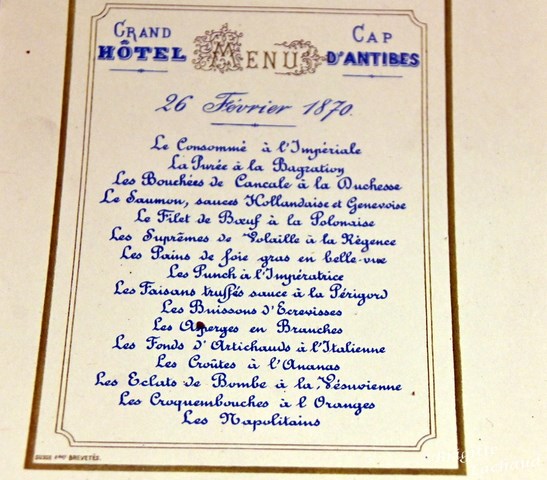 GRAND HÔTEL
MENU
CAP D'ANTIBES
26 Février 1870.
Le Consommé à l'Impériale
La Purée à la Bagration
Les Bouchées de Cancale à la Duchesse
Le Saumon, sauces Hollandaise et Genevoise
Le Filet de Bœuf à la Polonaise
Les Suprêmes de Volaille à la Régence
Les Pains de foie gras en belle-vue
Les Punch à l'Impératrice
Les Faisans truffés sauce à la Périgord
Les Buissons d'Ecrevisses
Les Asperges en Branches
Les Fonds d'Artichauds à l'Italienne
Les Croûtes à l'Ananas
Les Eclats de Bombe à la Vésuvienne
Les Croquembouches à l Oranges
Les Napolitains
BREVETÉS.